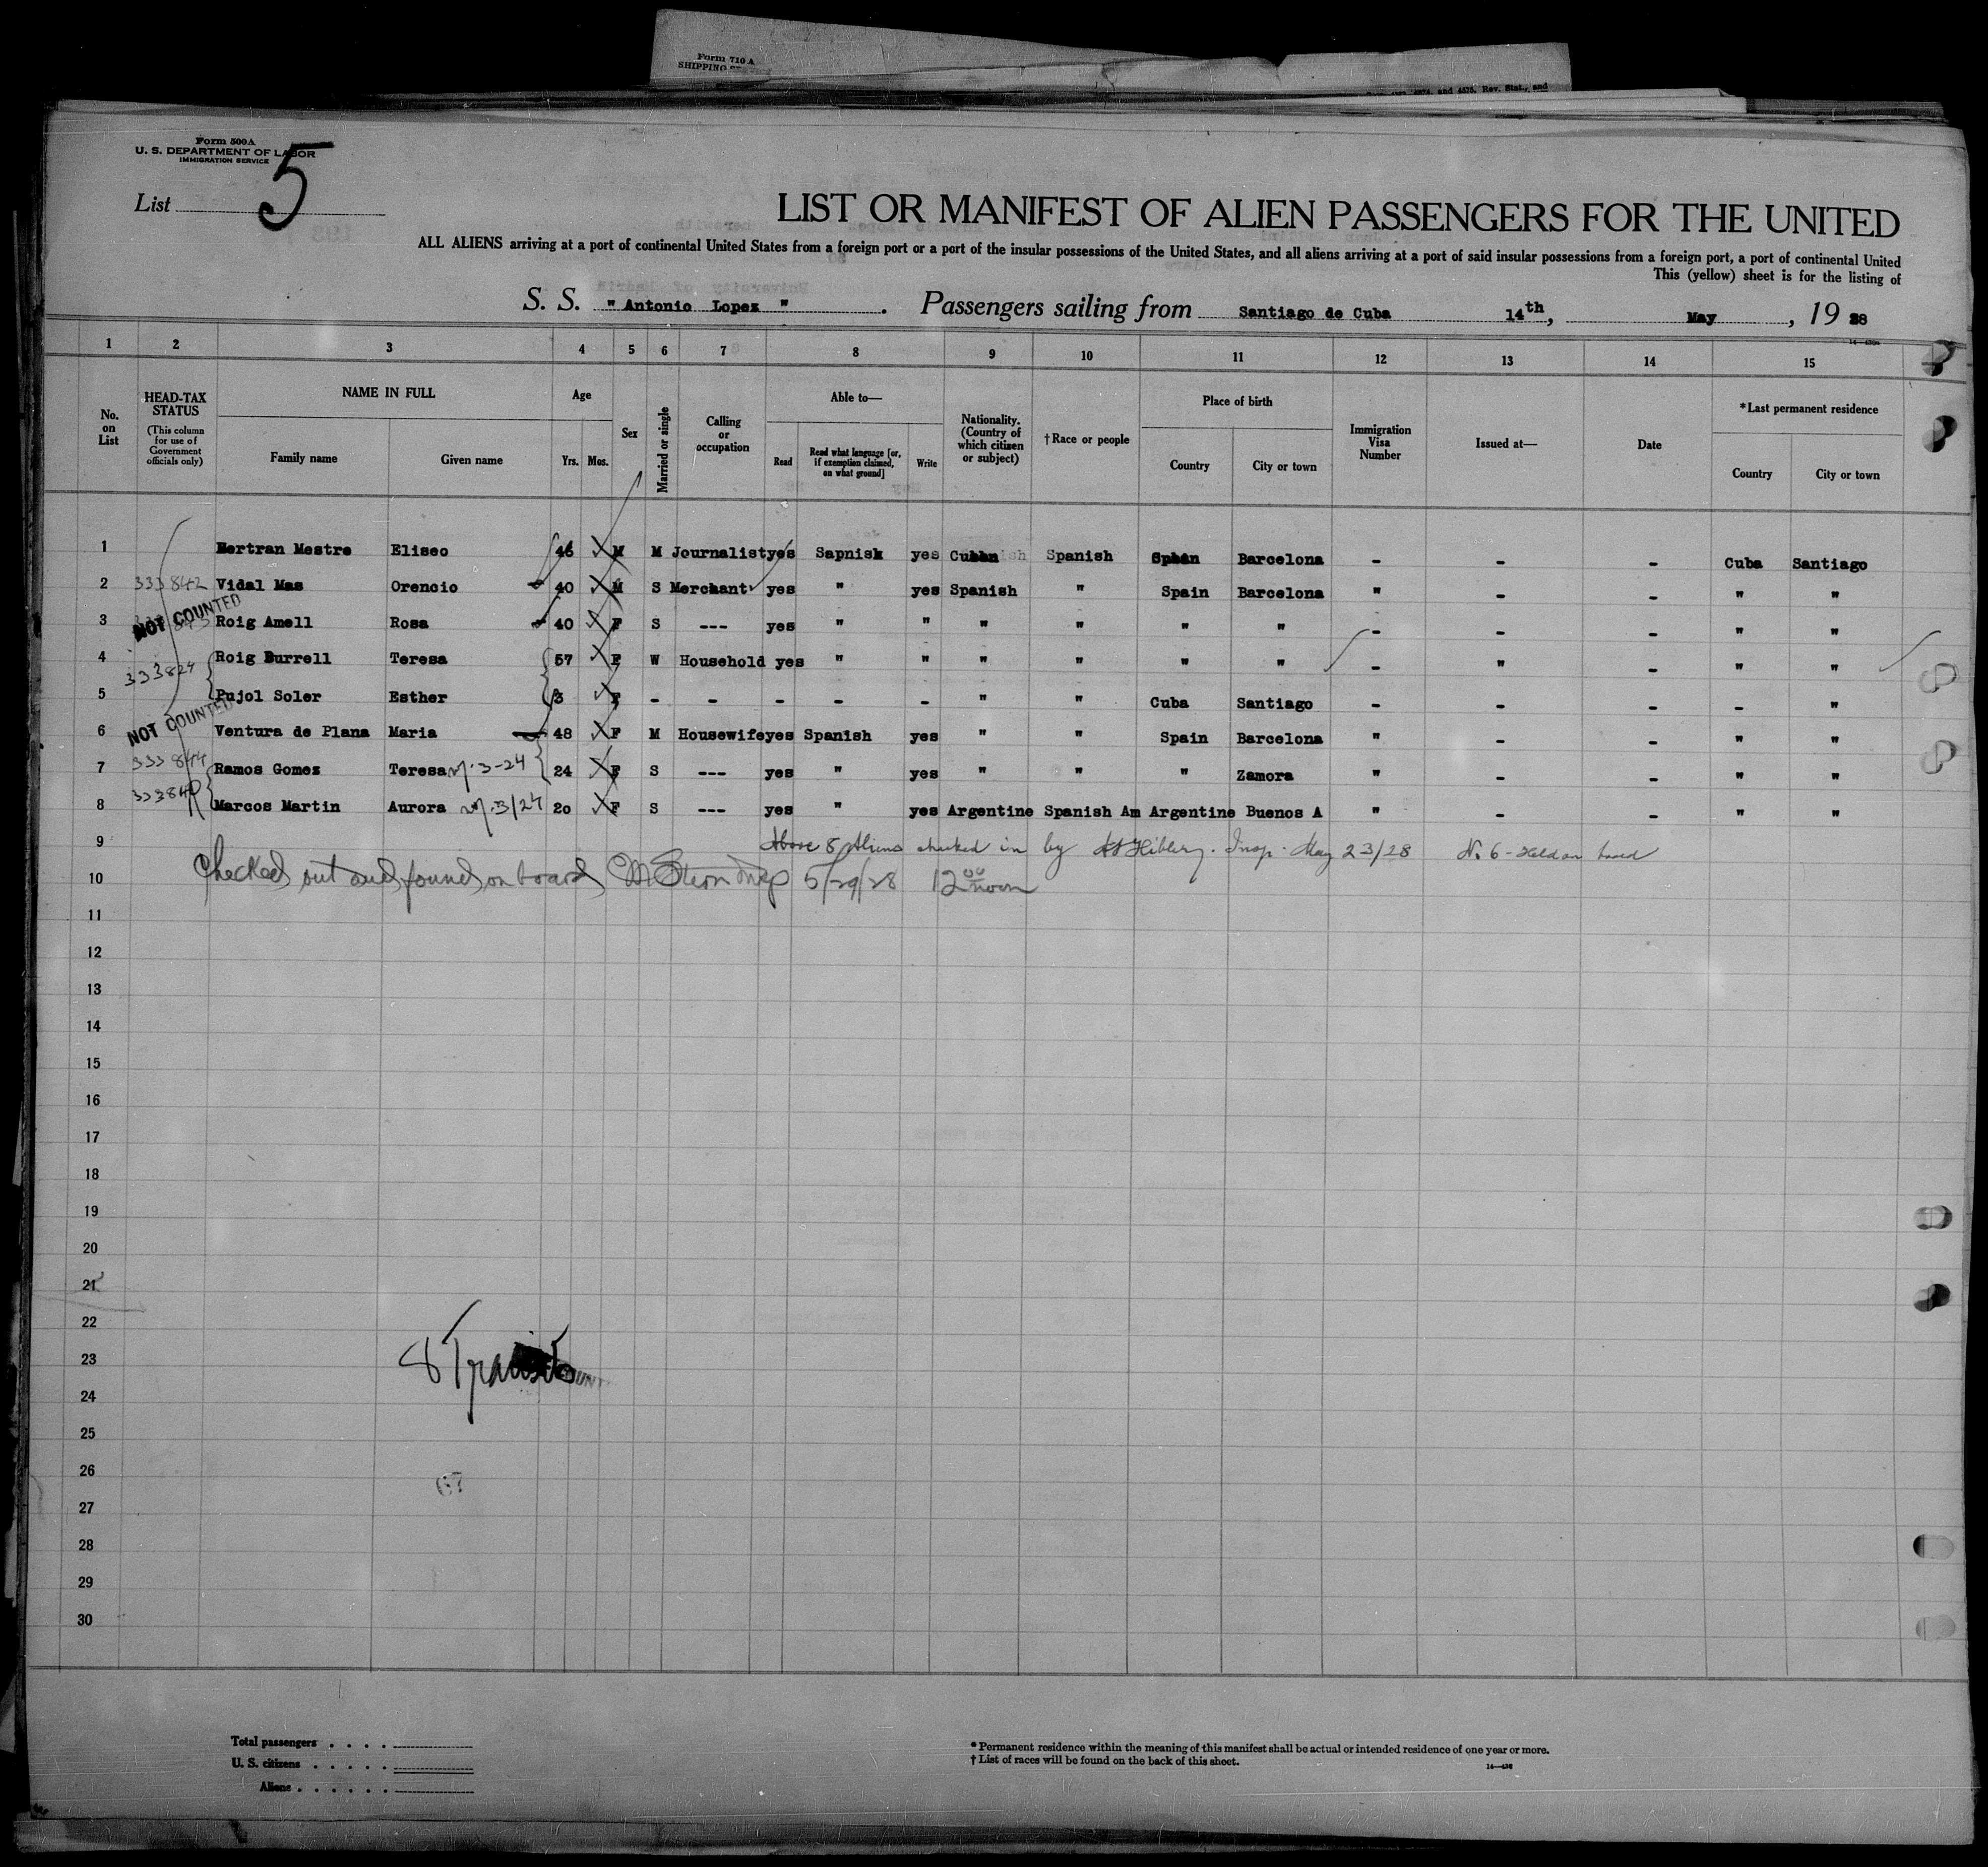 Form 710 A
SHIPPING
and 4575, Rev. Stat., and
Form 500A
U. S. DEPARTMENT OF LABOR
IMMIGRATION SERVICE
List 5
LIST OR MANIFEST OF ALIEN PASSENGERS FOR THE UNITED
ALL ALIENS arriving at a port of continental United States from a foreign port or a port of the insular possessions of the United States, and all aliens arriving at a port of said insular possessions from a foreign port, a port of continental United
This (yellow) sheet is for the listing of
S. S. "Antonio Lopez". Passengers sailing from Santiago de Cuba 14th, May, 1928
1 2 3 4 5 6 7 8 9 10 11 12 13 14 15
No. on List
HEAD-TAX STATUS (This column for use of Government officials only)
NAME IN FULL Family name Given name
Age Yrs. Mos.
Sex
Married or single
Calling or occupation
Able to— Read Read what language [or, if exemption claimed, on what ground] Write
Nationality. (Country of which citizen or subject)
† Race or people
Place of birth Country City or town
Immigration Visa Number
Issued at—
Date
*Last permanent residence Country City or town
1 Bertran Mestre Eliseo 46 M M Journalist yes Sapnish yes Cuban Spanish Spain Barcelona - - - Cuba Santiago
2 333842 Vidal Mas Orencio 40 M S Merchant yes " yes Spanish " Spain Barcelona " - - " "
NOT COUNTED
3 Roig Amell Rosa 40 F S --- yes " " " " " " - - - " "
4 333824 Roig Burrell Teresa 57 F W Household yes " " " " " " - " - " "
5 Pujol Soler Esther 3 F - - - - - " " Cuba Santiago - - - - "
NOT COUNTED
6 Ventura de Plana Maria 48 F M Housewife yes Spanish yes " " Spain Barcelona " - - " "
7 333844 Ramos Gomez Teresa 3-24 24 F S --- yes " yes " " " Zamora " - - " "
8 333840 Marcos Martin Aurora 3/24 20 F S --- yes " yes Argentine Spanish Am Argentine Buenos A " - - " "
9 Above 8 Aliens checked in by Insp. May 23/28 No 6 - Held on board
10 Checked out and found on board Insp 5/29/28 12 00 noon
11
12
13
14
15
16
17
18
19
20
21
22
23 8 Transits
24
25
26
67
27
28
29
30
Total passengers . . . .
U. S. citizens . . . . .
Aliens . . . . . .
* Permanent residence within the meaning of this manifest shall be actual or intended residence of one year or more.
† List of races will be found on the back of this sheet.